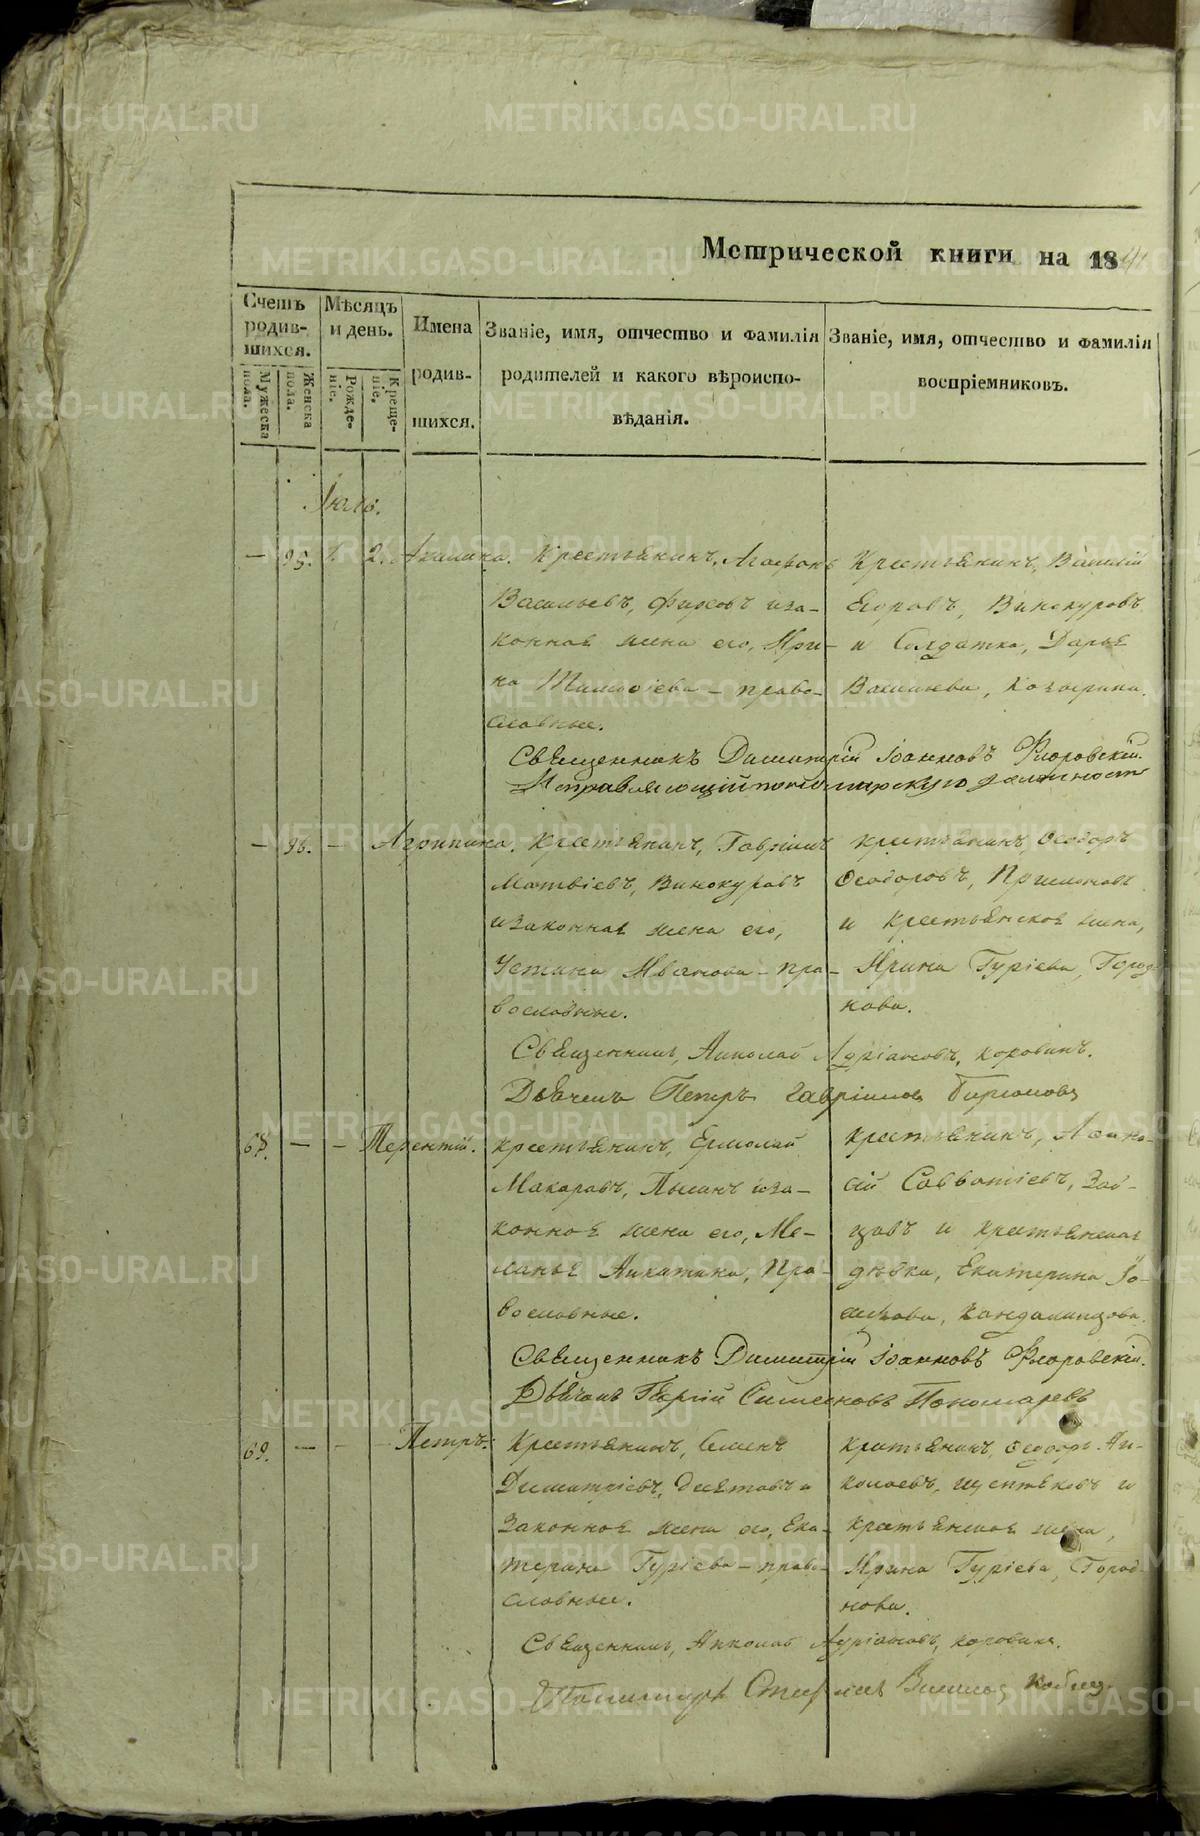 Метрической книги на 184
Счетъ родив-шихся.
Мужеска пола.
Женска пола.
Мѣсяцъ и день.
Рожде-ніе.
Креще-ніе.
Имена родив-шихся.
Званіе, имя, отчество и фамилія
родителей и какого вѣроиспо-
вѣданія.
Званіе, имя, отчество и фамилія
воспріемниковъ.
Іюль.
— 95. 1. 2. Акилина. Крестьянинъ, Агафонъ
Васильевъ, иза-
конная жена его, Ири-
на Тимофіева - право-
славные.
Крестьянинъ, Василій
Егоровъ, Винокуровъ
и Солдатка, Дарья
Васильева,
Священникъ Димитрій Іоанновъ Флоровскій.
Исправляющій пономарскую должность
— 96. — Агрипина. Крестьянинъ, Гавріилъ
Матвіевъ, Винокуровъ
и законная жена его,
Устина Иванова - пра-
вославные.
крестьянинъ, Ѳеодоръ
Ѳеодоровъ,
и крестьянская жена,
Ирина Гурієва, Город-
нова.
Священникъ, Николай Адріановъ, Коровинъ.
Дьячекъ Петръ Гавріиловъ
68. — – Терентій. Крестьянинъ, Ермолай
Макаровъ, иза-
конная жена его, Ме-
ланья Никитина, Пра-
вославные.
крестьянинъ, Аѳана-
сій Савватіевъ, Зай-
цовъ и крестьянская
дѣвка, Екатерина
Священникъ Димитрій Іоанновъ Флоровскій.
Дьячекъ Георгій Симеоновъ Пономаревъ
69. — – – Петръ. Крестьянинъ, Семенъ
Димитріевъ, и
законная жена его, Ека-
терина Гурієва - право-
славные.
крестьянинъ, Ѳеодоръ Ни-
колаевъ, и
крестьянская жена,
Ирина Гурієва, Город-
нова.
Священникъ, Николай Адріановъ, Коровинъ.
Пономарь
METRIKI.GASO-URAL.RU